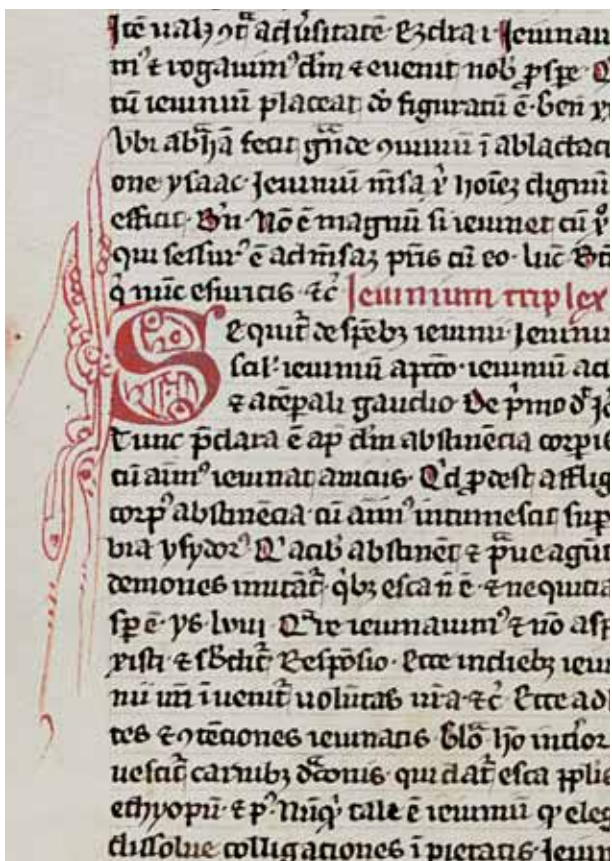 Itē ualꝫ ꝯtᵃ adūſitatē Eꝫdra i Ieiunaui
mꝰ ⁊ rogauimꝰ dm̄ ⁊ evenit nob̄ ꝓſpe
tū ieiuniū placeat dō figuratū ē Gen̄
Vbi abꝛ̄hā fecit gͣnde ꝯuiuiū ī ablactaci
one yſaac Ieiuniū mſ̄a hoīeꝫ dignū
efficit Nō ē magnū ſi ieiunet cū
qui ſeſſurꝰ ē ad mſ̄aꝫ pr̄is cū eo luc̄
q̇ nūc eſuritis ⁊c̄ Ieiunium triplex
Sequit᷑ de ſpēbꝫ ieiunii Ieiuniū
ſcil ieiuniū ieiuniū
⁊ a tēꝑali gaudio De p̄mo
Tunc p̄clara ē ap̄ dm̄ abſtinēcia corꝑis
cū animꝰ ieiunat a uiciis Qͥd ꝓdeſt afflig
corpꝰ abſtinēcia cū animꝰ intumeſcit ſuꝑ
bia yſydorꝰ Qͥ a cib̄ abſtinēt ⁊ p̄ue agūt
demones imitāt᷑ qͥbꝫ eſca nō ē ⁊ nequitia
ſꝑ ē yſ lviii Qͣre ieiunauimꝰ ⁊ nō aſp
xiſti ⁊ Reſpōſio Ecce in diebꝫ ieiu
nii ur̄i īuenit᷑ uolūtas ur̄a ⁊c̄ Ecce ad li
tes ⁊ ꝯtēciones ieiunatis Gloᵃ
ueſcit᷑ carnibꝫ dͣconis qui dat᷑ eſca pplis
ethyopū ⁊ pꝰ Nūqͥ tale ē ieiuniū qͦ eleg
diſſolue colligationes īpietatis Ieiun